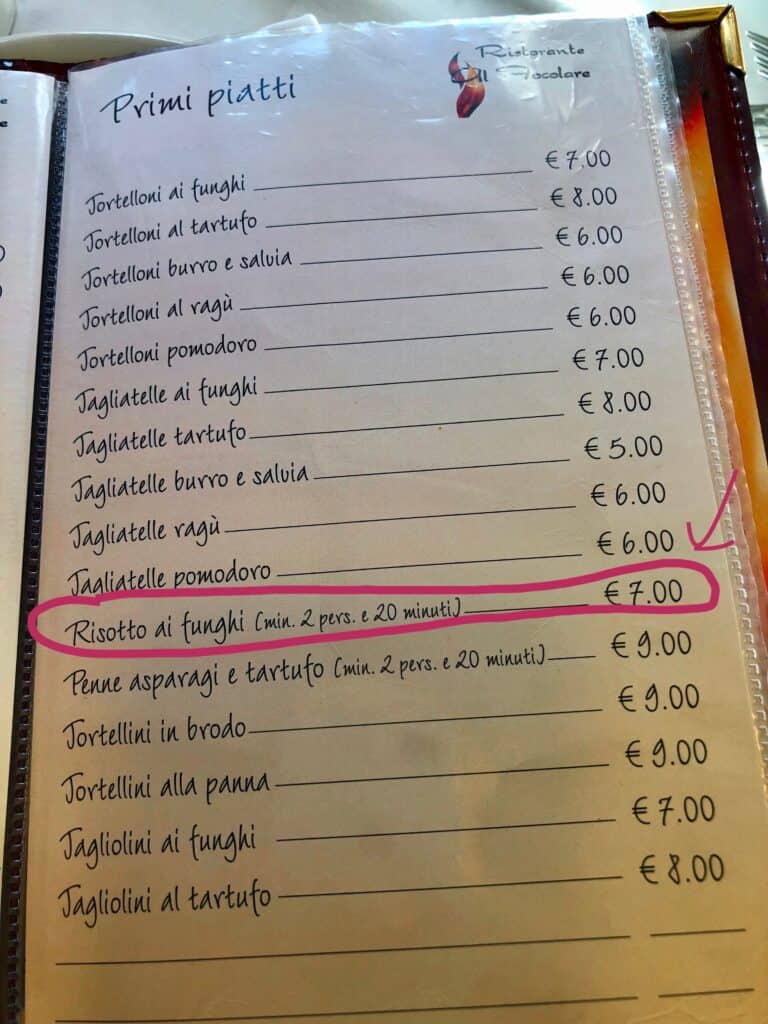 Primi piatti
Ristorante
Il Focolare
Tortelloni ai funghi € 7.00
Tortelloni al tartufo € 8.00
Tortelloni burro e salvia € 6.00
Tortelloni al ragù € 6.00
Tortelloni pomodoro € 6.00
Tagliatelle ai funghi € 7.00
Tagliatelle tartufo € 8.00
Tagliatelle burro e salvia € 5.00
Tagliatelle ragù € 6.00
Tagliatelle pomodoro € 6.00
Risotto ai funghi (min. 2 pers. e 20 minuti) € 7.00
Penne asparagi e tartufo (min. 2 pers. e 20 minuti) € 9.00
Tortellini in brodo € 9.00
Tortellini alla panna € 9.00
Tagliolini ai funghi € 7.00
Tagliolini al tartufo € 8.00